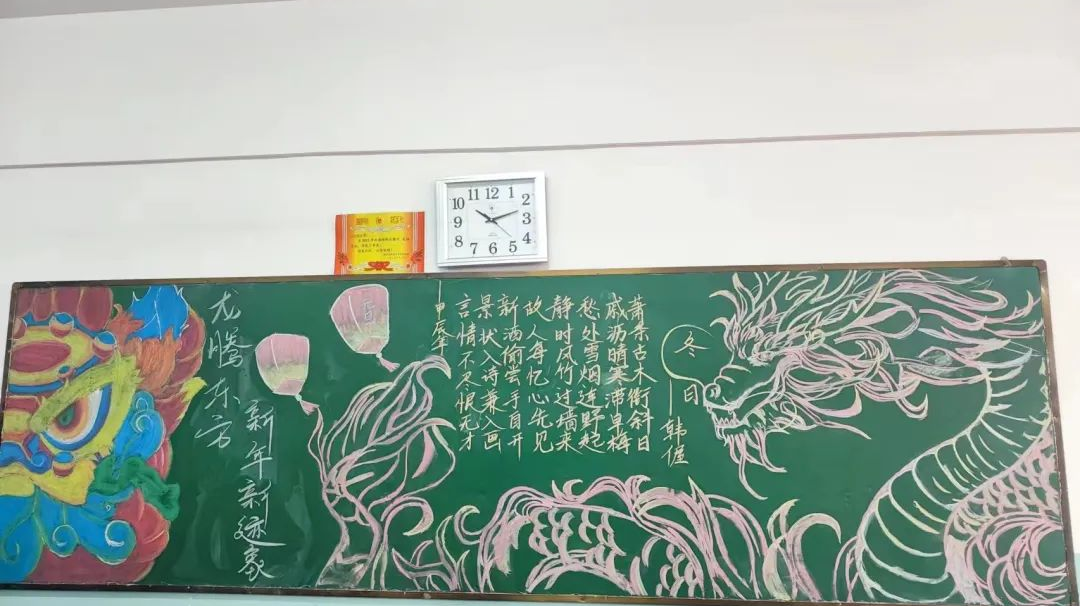 11 12 1
10 2
9 3
8 4
7 6 5
冬日
韩偓
萧条古木衔斜日
戚沥晴寒滞早梅
愁处雪烟连野起
静时风竹过墙来
故人每忆心先见
新酒偷尝手自开
景状入诗兼入画
言情不尽恨无才
甲辰年
龙腾东方
新年新迹象